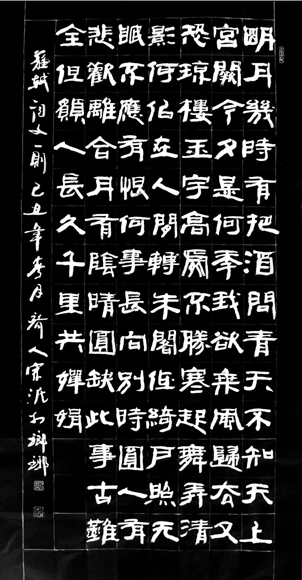 明月幾時有把酒問青天不知天上
宮闕今夕是何年我欲乘風歸去又
恐琼樓玉宇高處不勝寒起舞弄清
影何似在人間轉朱閣低綺戶照无
眠不應有恨何事長向別時圓人有
悲歡離合月有陰晴圓缺此事古難
全但願人長久千里共嬋娟
蘇軾詞文一則己丑年季月齊人宋於瑯琊